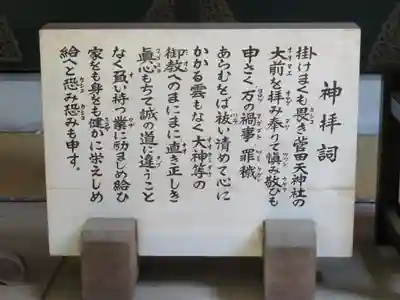 神拝詞
掛けまくも畏き菅田天神社の
大前を拝み奉りて慎み敬ひも
申さく万の禍事罪穢
あらむをば祓い清めて心に
かかる雲もなく大神等の
御教へのまにまに直き正しき
眞心もちて誠の道に違うこと
なく負い持つ業に励ましめ給ひ
家をも身をも健かに栄えしめ
給へと恐み恐みも申す。